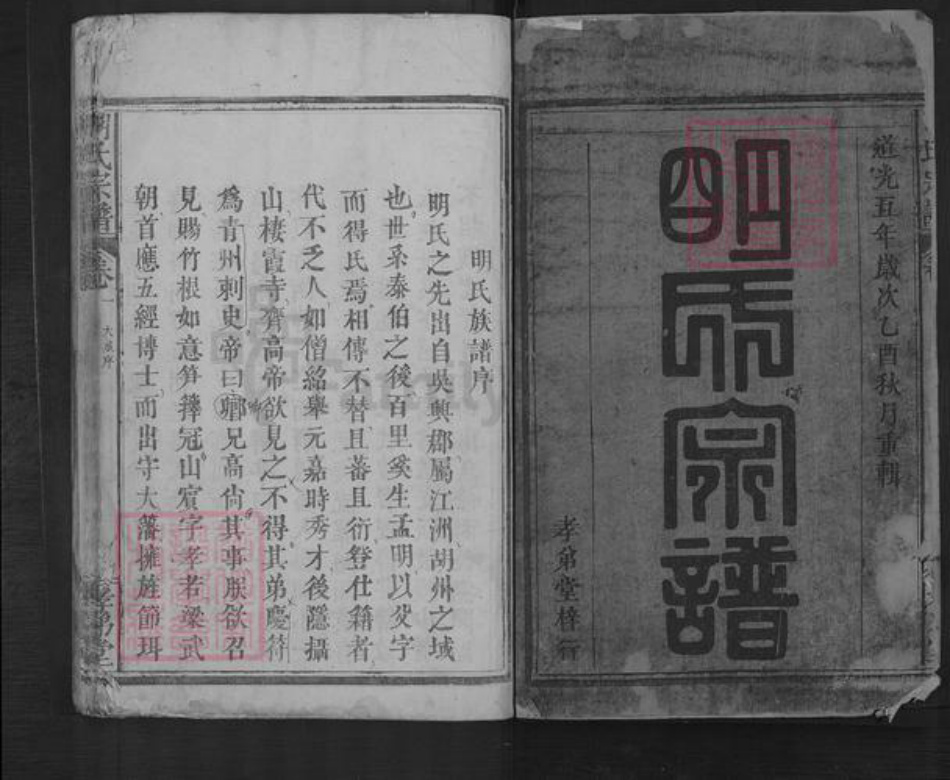 道光五年歲次乙酉秋月重輯
明氏宗譜
孝弟堂梓行
明氏族譜序
明氏之先出自吳興郡屬江洲湖州之域
也世系泰伯之後百里奚生孟明以父字
而得氏焉相傳不替且蕃且衍登仕籍者
代不乏人如僧紹舉元嘉時秀才後隱攝
山棲霞寺齊高帝欲見之不得其弟慶符
爲青州刺史帝曰卿兄高尙其事朕欲召
見賜竹根如意笋籜冠山賔字孝若梁武
朝首應五經博士而出守大藩擁旌節珥
明氏宗譜
卷一